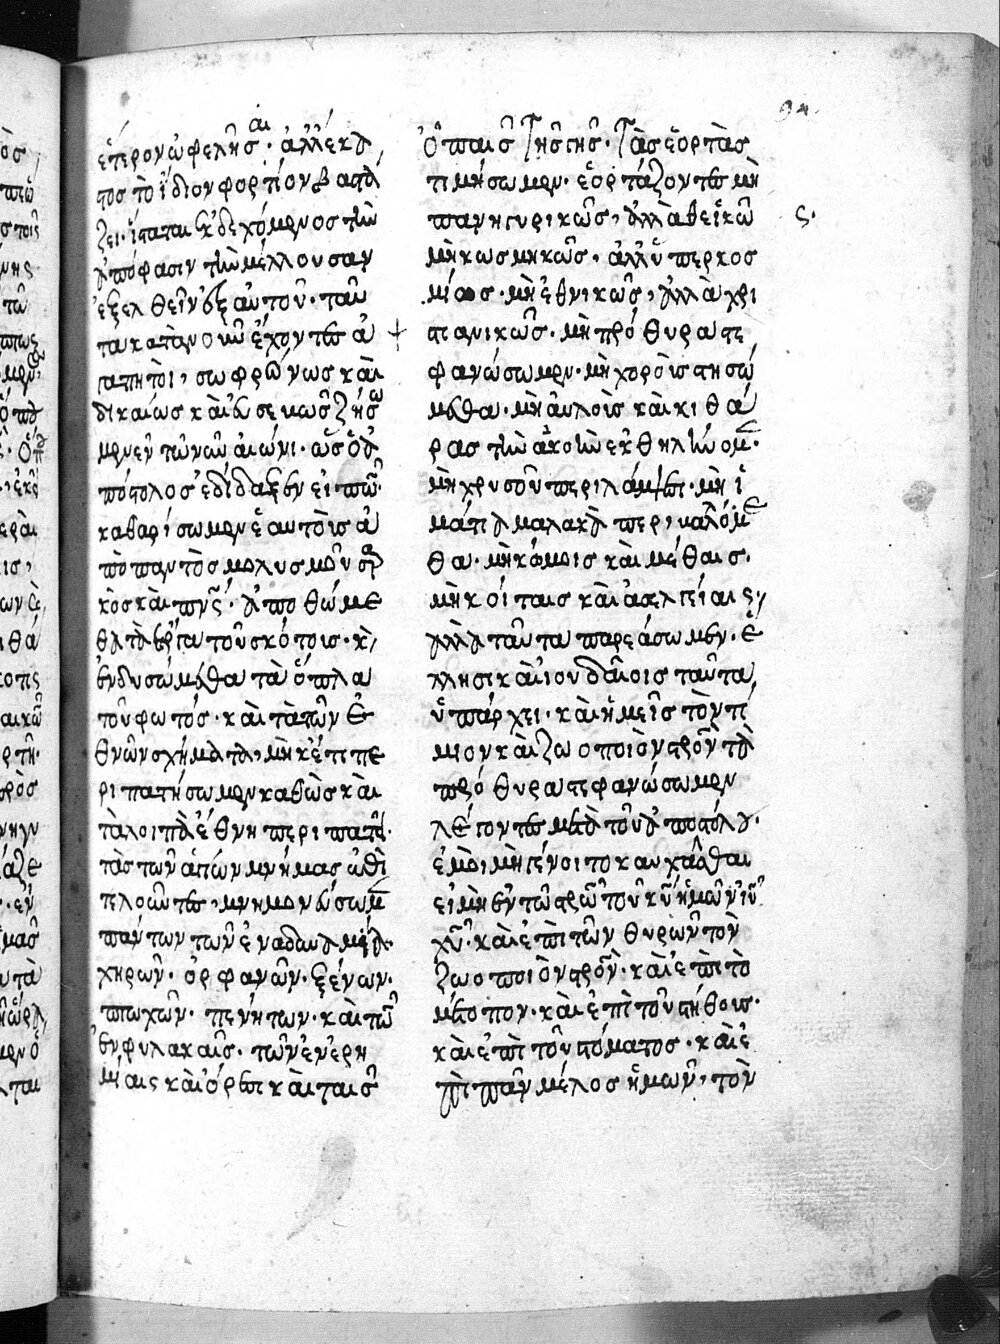 94
αι
ἕτερον ὠφελῆσ· ἀλλ' ἕκα
τος τὸ ἴδιον φορτίον βαστά
ζει· ἵσταται ἐκδεχόμενος τὴν
ἀπόφασιν τὴν μέλλουσαν
ἐξελθεῖν ἐξ αὐτοῦ· ταῦ
τα κατὰ νοῦν ἔχοντες ἀ
γαπητοὶ, σωφρόνως καὶ
δικαίως καὶ εὐσεβῶς ζήσω
μεν ἐν τῷ νῦν αἰῶνι· ὡς ὁ ἀ
πόστολος ἐδίδαξεν εἰπών·
καθαρίσωμεν ἑαυτοὺς ἀ
πὸ παντὸς μολυσμοῦ σαρ
κὸς καὶ πνς· ἀποθώμε
θα τὰ ἔργα τοῦ σκότους· κὶ
ἐνδυσώμεθα τὰ ὅπλα
τοῦ φωτός· καὶ τὰ τῶν ἐ
θνῶν σχήματα, μηκέτι πε
ριπατήσωμεν καθὼς καὶ
τὰ λοιπὰ ἔθνη περιπατεῖ·
τὰς τῶν ἁγίων μνήμας ἐπι
τελοῦντες, μνημονεύσωμεν
πάντων τῶν ἐν ἀδυναμία·
χηρῶν· ὀρφανῶν· ξένων·
πτωχῶν· πενήτων· καὶ τῶν
ἐν φυλακαῖς· τῶν ἐν ἐρη
μίαις καὶ ὄρεσι καὶ ταῖς
ὀπαῖς τῆς γῆς· Τὰς ἑορτὰς
τιμήσωμεν· ἑορτάζοντες μὴ
πανηγυρικῶς, ἀλλὰ θεϊκῶς·
μὴ κωσμηκῶς· ἀλλ' ὑπερκοσ
μίως· μὴ ἐθνικῶς, ἀλλὰ χρι
στιανικῶς· μὴ πρόθυρα στε
φανώσωμεν· μὴ χοροὺς στησώ
μεθα· μὴ αὐλοῖς καὶ κιθά
ραις τὴν ἀκοὴν ἐκθηλύνομεν·
μὴ χρυσοῦν περιλάμψει· μὴ ἱ
μάτια μαλακὰ περικαλόμε
θα· μὴ κώμοις καὶ μέθαις·
μὴ κοίταις καὶ ἀσελγείαις,
ἀλλὰ ταῦτα παρεάσωμεν· ἕ
λλησι καὶ ἰουδαίοις ταῦτα
ὑπάρχει· καὶ ἡμεῖς τὸν τί
μιον καὶ ζωοποιὸν σρον τὰ
πρόθυρα στεφανώσωμεν
λέγοντες μετὰ τοῦ ἀποστόλου·
ἐμοὶ μὴ γένοιτο καυχᾶσθαι
εἰ μὴ ἐν τῷ σρῶ τοῦ κυ ἡμῶν ιυ
χυ· καὶ ἐπὶ τῶν θυρῶν τὸν
ζωοποιὸν σρον· καὶ ἐπὶ τὸ
μέτοπον· καὶ ἐπὶ τοῦ στήθους·
καὶ ἐπὶ τοῦ στόματος· καὶ ἐ
πὶ πᾶν μέλος ἡμῶν, τὸν
ς·